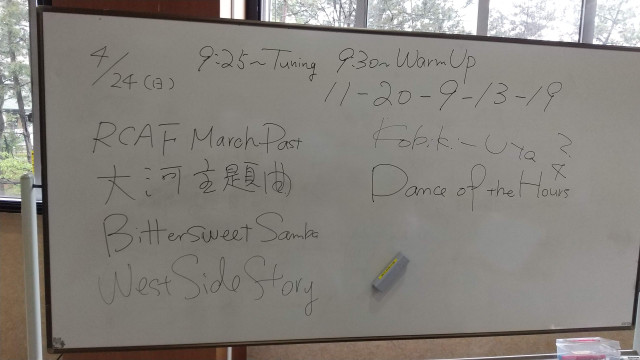 4/24(日) 9:25~Tuning 9:30~WarmUp
11-20-9-13-19
RCAF March Past
大河主題曲
Bittersweet Samba
West Side Story
Kobiki-Uta 2.
4
Dance of the Hours